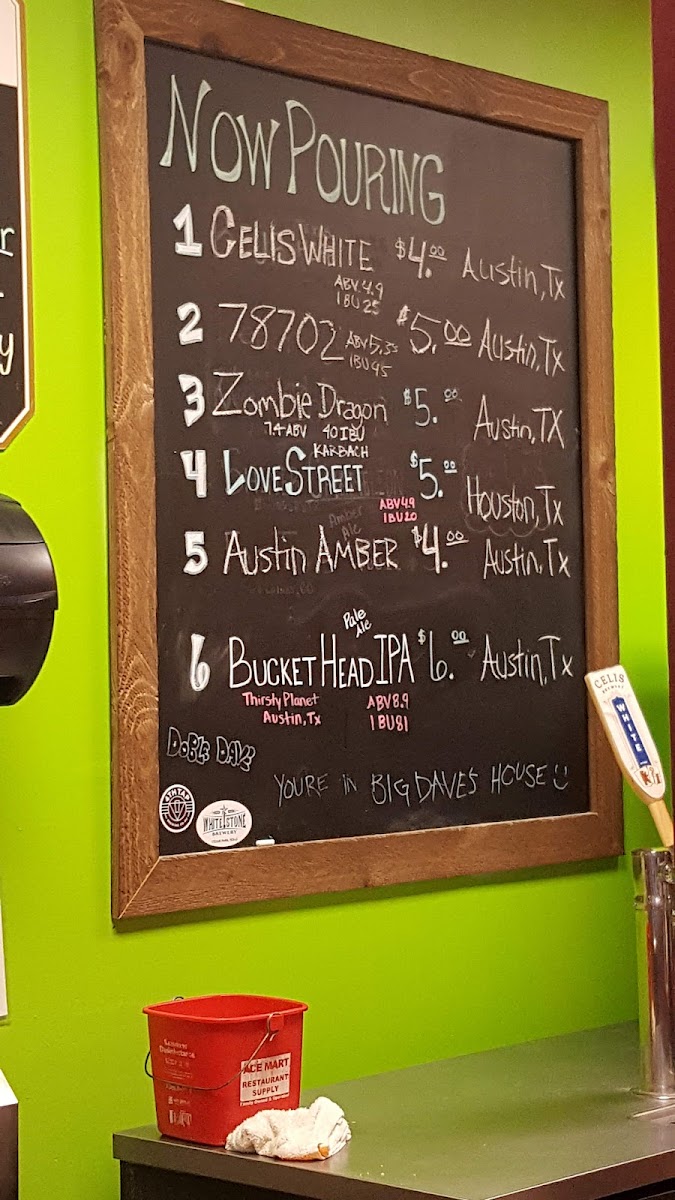 NOW POURING
1 CELIS WHITE $4.00 Austin, Tx
ABV 4.9
IBU 25
2 78702 $5.00 Austin, Tx
ABV 5.35
IBU 45
3 Zombie Dragon $5.00 Austin, TX
7.4 ABV 40 IBU
KARBACH
4 LOVE STREET $5.00 Houston, Tx
ABV 4.9
IBU 20
Amber
Ale
5 Austin AMBER $4.00 Austin, Tx
Pale
Ale
6 BUCKET HEAD IPA $6.00 Austin, Tx
Thirsty Planet ABV 8.9
Austin, Tx IBU 81
DOBLE DAVE
YOURE in BIG DAVES HOUSE
WHITESTONE
BREWERY
CELIS
BREWERY
WHITE
r
y
ACE MART
RESTAURANT
SUPPLY